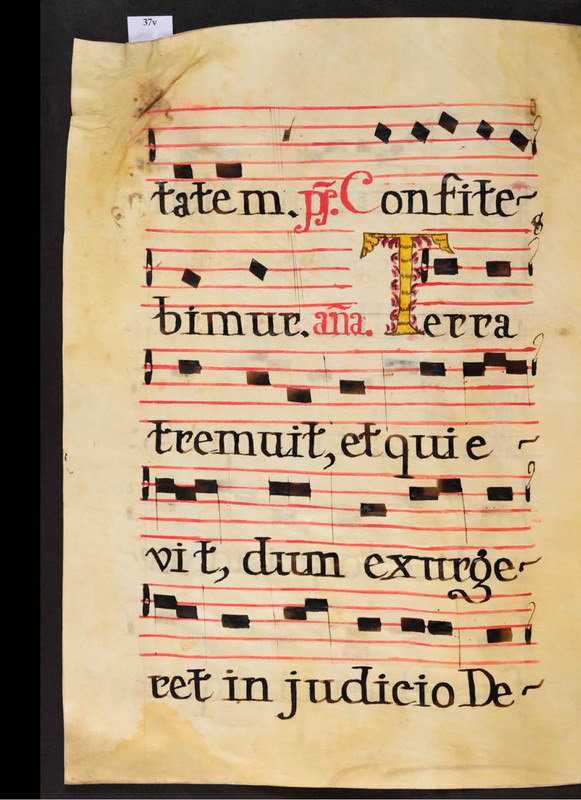 37v
tatem. ps. Confite~
bimur. aña. Terra
tremuit, et quie ~
vit, dum exurge~
ret in judicio De~